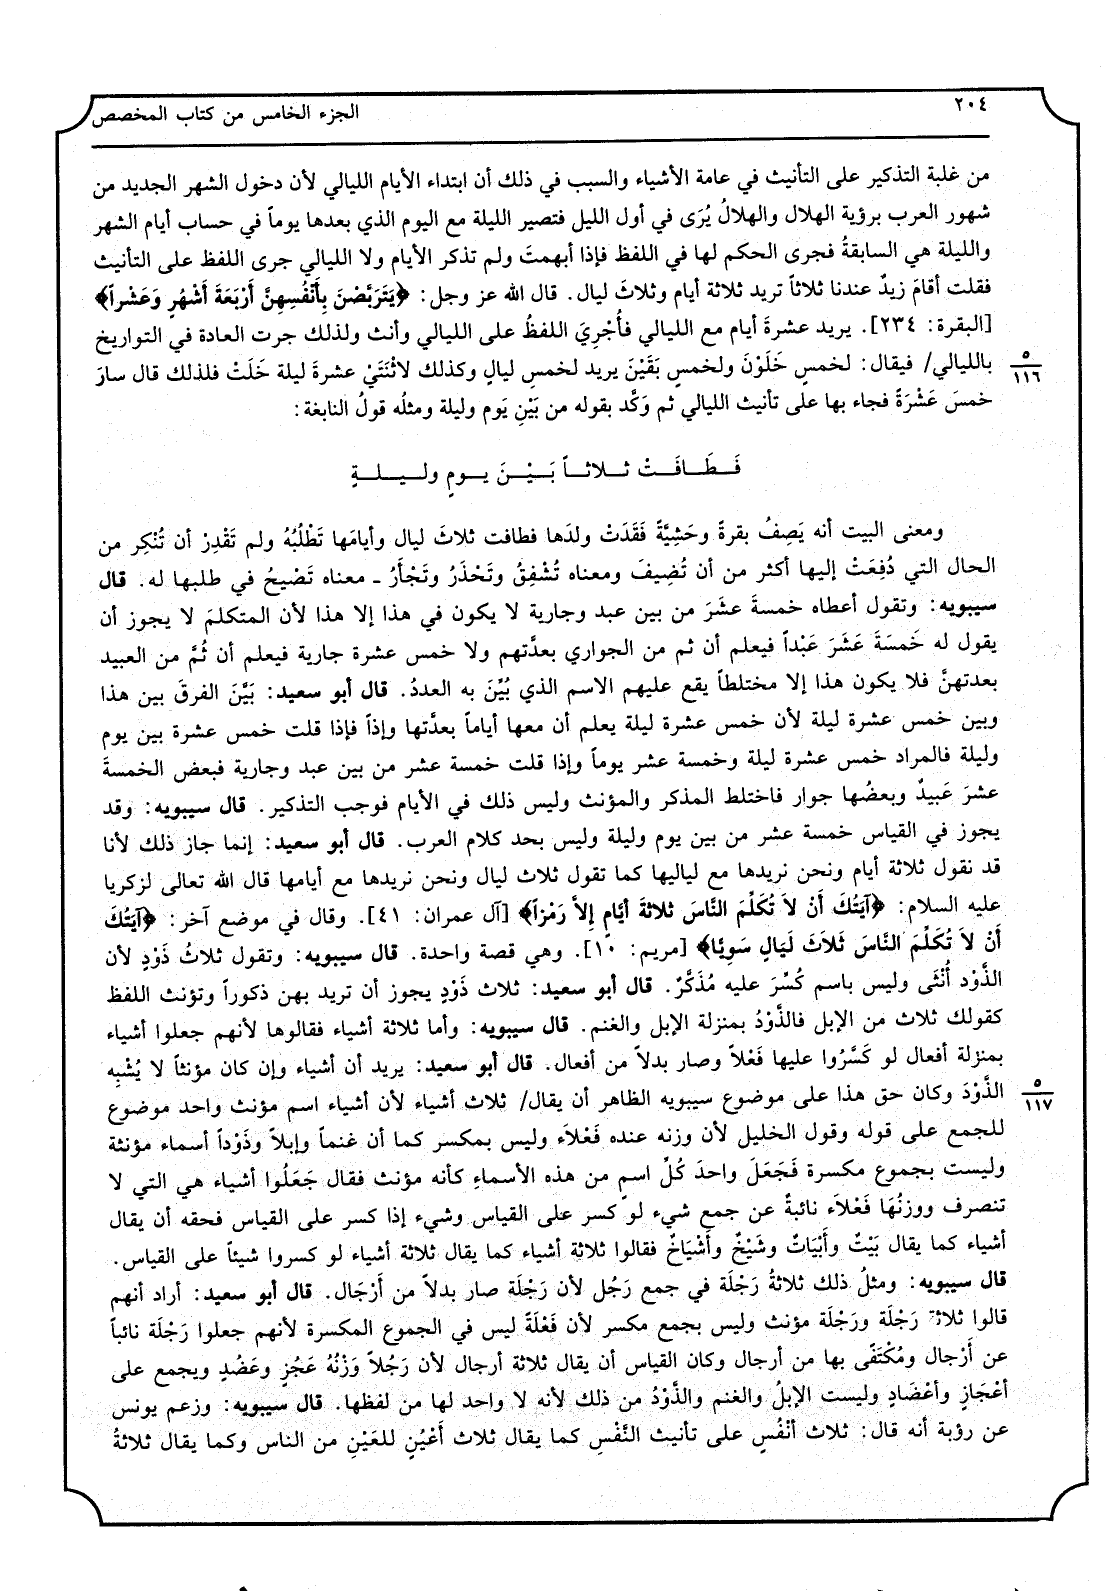 ٢٠٤
الجزء الخامس من كتاب المخصص
من غلبة التذكير على التأنيث في عامة الأشياء والسبب في ذلك أن ابتداء الأيام الليالي لأن دخول الشهر الجديد من
شهور العرب برؤية الهلال والهلالُ يُرَى في أول الليل فتصير الليلة مع اليوم الذي بعدها يوماً في حساب أيام الشهر
والليلة هي السابقةُ فجرى الحكم لها في اللفظ فإذا أبهمتَ ولم تذكر الأيام ولا الليالي جرى اللفظ على التأنيث
فقلت أقامَ زيدٌ عندنا ثلاثاً تريد ثلاثة أيام وثلاثَ ليال. قال الله عز وجل: ﴿يَتَرَبَّصْنَ بِأَنْفُسِهِنَّ أَرْبَعَةَ أَشْهُرٍ وَعَشْراً﴾
[البقرة: ٢٣٤]. يريد عشرةَ أيام مع الليالي فأُجْرِيَ اللفظُ على الليالي وأنث ولذلك جرت العادة في التواريخ
بالليالي/ فيقال: لخمسٍ خَلَوْنَ ولخمسٍ بَقَيْنَ يريد لخمسِ ليالٍ وكذلك لاثْنَتَيْ عشرةَ ليلة خَلَتْ فلذلك قال سارَ
٥
١١٦
خمسَ عَشْرَةً فجاء بها على تأنيث الليالي ثم وَكَّد بقوله من بَيْنِ يَوم وليلة ومثلُه قولُ النابغة:
فَـطَـافَـتْ ثـلاثـاً بَـيْـنَ يـومٍ ولـيـلـةٍ
ومعنى البيت أنه يَصِفُ بقرةً وحَشِيَّةً فَقَدَتْ ولدَها فطافت ثلاثَ ليال وأيامَها تَطْلُبُهُ ولم تَقْدِرْ أن تُنْكِر من
الحال التي دُفِعَتْ إليها أكثر من أن تُضِيفَ ومعناه تُشْفِقُ وتَحْذَرُ وتَجْأَرُ ـ معناه تَصْيحُ في طلبها له. قال
سيبويه: وتقول أعطاه خمسةَ عشَرَ من بين عبد وجارية لا يكون في هذا إلا هذا لأن المتكلمَ لا يجوز أن
يقول له خَمسَةَ عَشَرَ عَبْداً فيعلم أن ثم من الجواري بعدَّتهم ولا خمس عشرة جارية فيعلم أن ثُمَّ من العبيد
بعدتهنَّ فلا يكون هذا إلا مختلطاً يقع عليهم الاسم الذي بُيِّنَ به العددُ. قال أبو سعيد: بَيَّنَ الفرقَ بين هذا
وبين خمس عشرة ليلة لأن خمس عشرة ليلة يعلم أن معها أياماً بعدَّتها وإذاً فإذا قلت خمس عشرة بين يوم
وليلة فالمراد خمس عشرة ليلة وخمسة عشر يوماً وإذا قلت خمسة عشر من بين عبد وجارية فبعض الخمسةَ
عشرَ عَبيدٌ وبعضُها جوار فاختلط المذكر والمؤنث وليس ذلك في الأيام فوجب التذكير. قال سيبويه: وقد
يجوز في القياس خمسة عشر من بين يوم وليلة وليس بحد كلام العرب. قال أبو سعيد: إنما جاز ذلك لأنا
قد نقول ثلاثة أيام ونحن نريدها مع لياليها كما تقول ثلاث ليال ونحن نريدها مع أيامها قال الله تعالى لزكريا
عليه السلام: ﴿آيَتُكَ أَنْ لاَ تُكَلِّمَ النَّاسَ ثلاثةَ أيَّامٍ إلاَّ رَمْزاً﴾ [آل عمران: ٤١]. وقال في موضع آخر: ﴿آيَتُكَ
أَنْ لاَ تُكَلِّمَ النَّاسَ ثَلاَثَ لَيَالٍ سَوِيًّا﴾ [مريم: ١٠]. وهي قصة واحدة. قال سيبويه: وتقول ثلاثُ ذَوْدٍ لأن
الذَّوْد أُنْثَى وليس باسم كُسِّرَ عليه مُذَكَّرٌ. قال أبو سعيد: ثلاث ذَوْدٍ يجوز أن تريد بهن ذكوراً وتؤنث اللفظ
كقولك ثلاث من الإبل فالذَّوْدُ بمنزلة الإبل والغنم. قال سيبويه: وأما ثلاثة أشياء فقالوها لأنهم جعلوا أشياء
بمنزلة أفعال لو كَسَّرُوا عليها فَعْلاً وصار بدلاً من أفعال. قال أبو سعيد: يريد أن أشياء وإن كان مؤنثاً لا يُشْبِه
الذَّوْدَ وكان حق هذا على موضوع سيبويه الظاهر أن يقال/ ثلاث أشياء لأن أشياء اسم مؤنث واحد موضوع
٥
١١٧
للجمع على قوله وقول الخليل لأن وزنه عنده فَعْلاَء وليس بمكسر كما أن غنماً وإبلاً وذَوْداً أسماء مؤنثة
وليست بجموع مكسرة فَجَعَلَ واحدَ كُلِّ اسمٍ من هذه الأسماءِ كأنه مؤنث فقال جَعَلُوا أشياء هي التي لا
تنصرف ووزنُهَا فَعْلاَء نائبةً عن جمع شيء لو كسر على القياس وشيء إذا كسر على القياس فحقه أن يقال
أشياء كما يقال بَيْتٌ وأَبْيَاتٌ وشَيْخٌ وأَشْيَاخٌ فقالوا ثلاثة أشياء كما يقال ثلاثة أشياء لو كسروا شيئاً على القياس.
قال سيبويه: ومثلُ ذلك ثلاثةُ رَجْلَة في جمع رَجُل لأن رَجْلَة صار بدلاً من أَرْجَال. قال أبو سعيد: أراد أنهم
قالوا ثلاثة رَجْلَة ورَجْلَة مؤنث وليس بجمع مكسر لأن فَعْلَةً ليس في الجموع المكسرة لأنهم جعلوا رَجْلَة نائباً
عن أَرْجال ومُكْتَفًى بها من أرجال وكان القياس أن يقال ثلاثة أرجال لأن رَجُلاً وَزْنُهُ عَجُزٍ وعَضُدٍ ويجمع على
أعْجَازٍ وأعْضَادٍ وليست الإبلُ والغنم والذَّوْدُ من ذلك لأنه لا واحد لها من لفظها. قال سيبويه: وزعم يونس
عن رؤبة أنه قال: ثلاث أنْفُسٍ على تأنيث النَّفْسِ كما يقال ثلاث أَعْيُنٍ للعَيْنِ من الناس وكما يقال ثلاثةُ